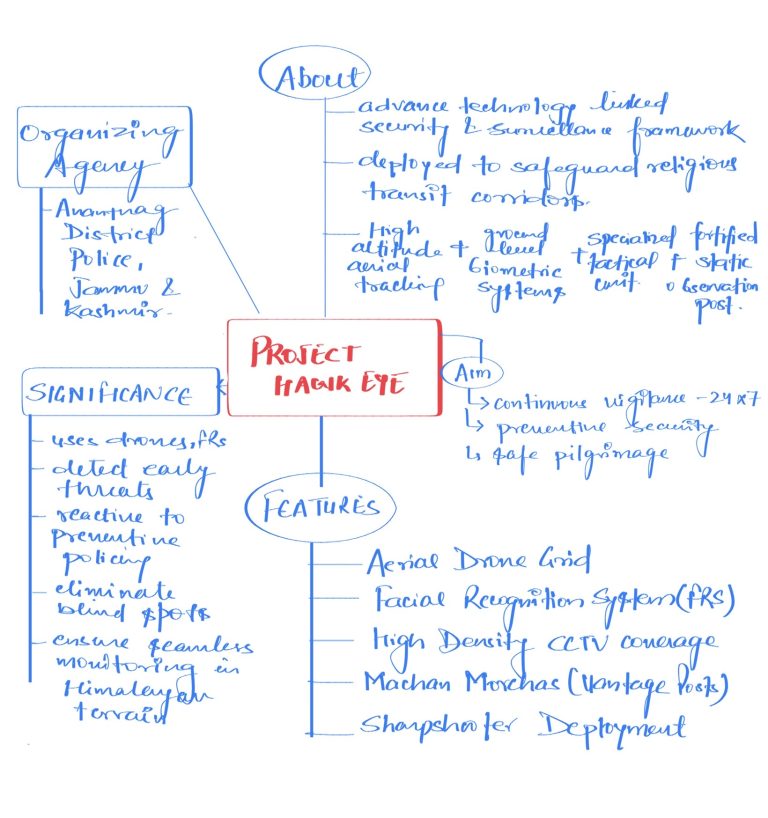 About
advance technology linked
security & surveillance framework
deployed to safeguard religious
transit corridors.
High altitude aerial tracking + ground level biometric systems + specialized tactical unit + fortified static observation post.
Organizing
Agency
Anantnag
District
Police,
Jammu &
Kashmir.
PROJECT
HAWK EYE
Aim
↳ continuous vigilance - 24x7
↳ preventive security
↳ safe pilgrimage
SIGNIFICANCE
uses drones, FRS
deted early
threats
reactive to
preventive
policing
eliminate
blind spots
ensure seamless
monitoring in
Himalayan
terrain
FEATURES
Aerial Drone Grid
Facial Recognition System (FRS)
High Density CCTV coverage
Machan Morchas (Vantage Posts)
Sharpshooter Deployment